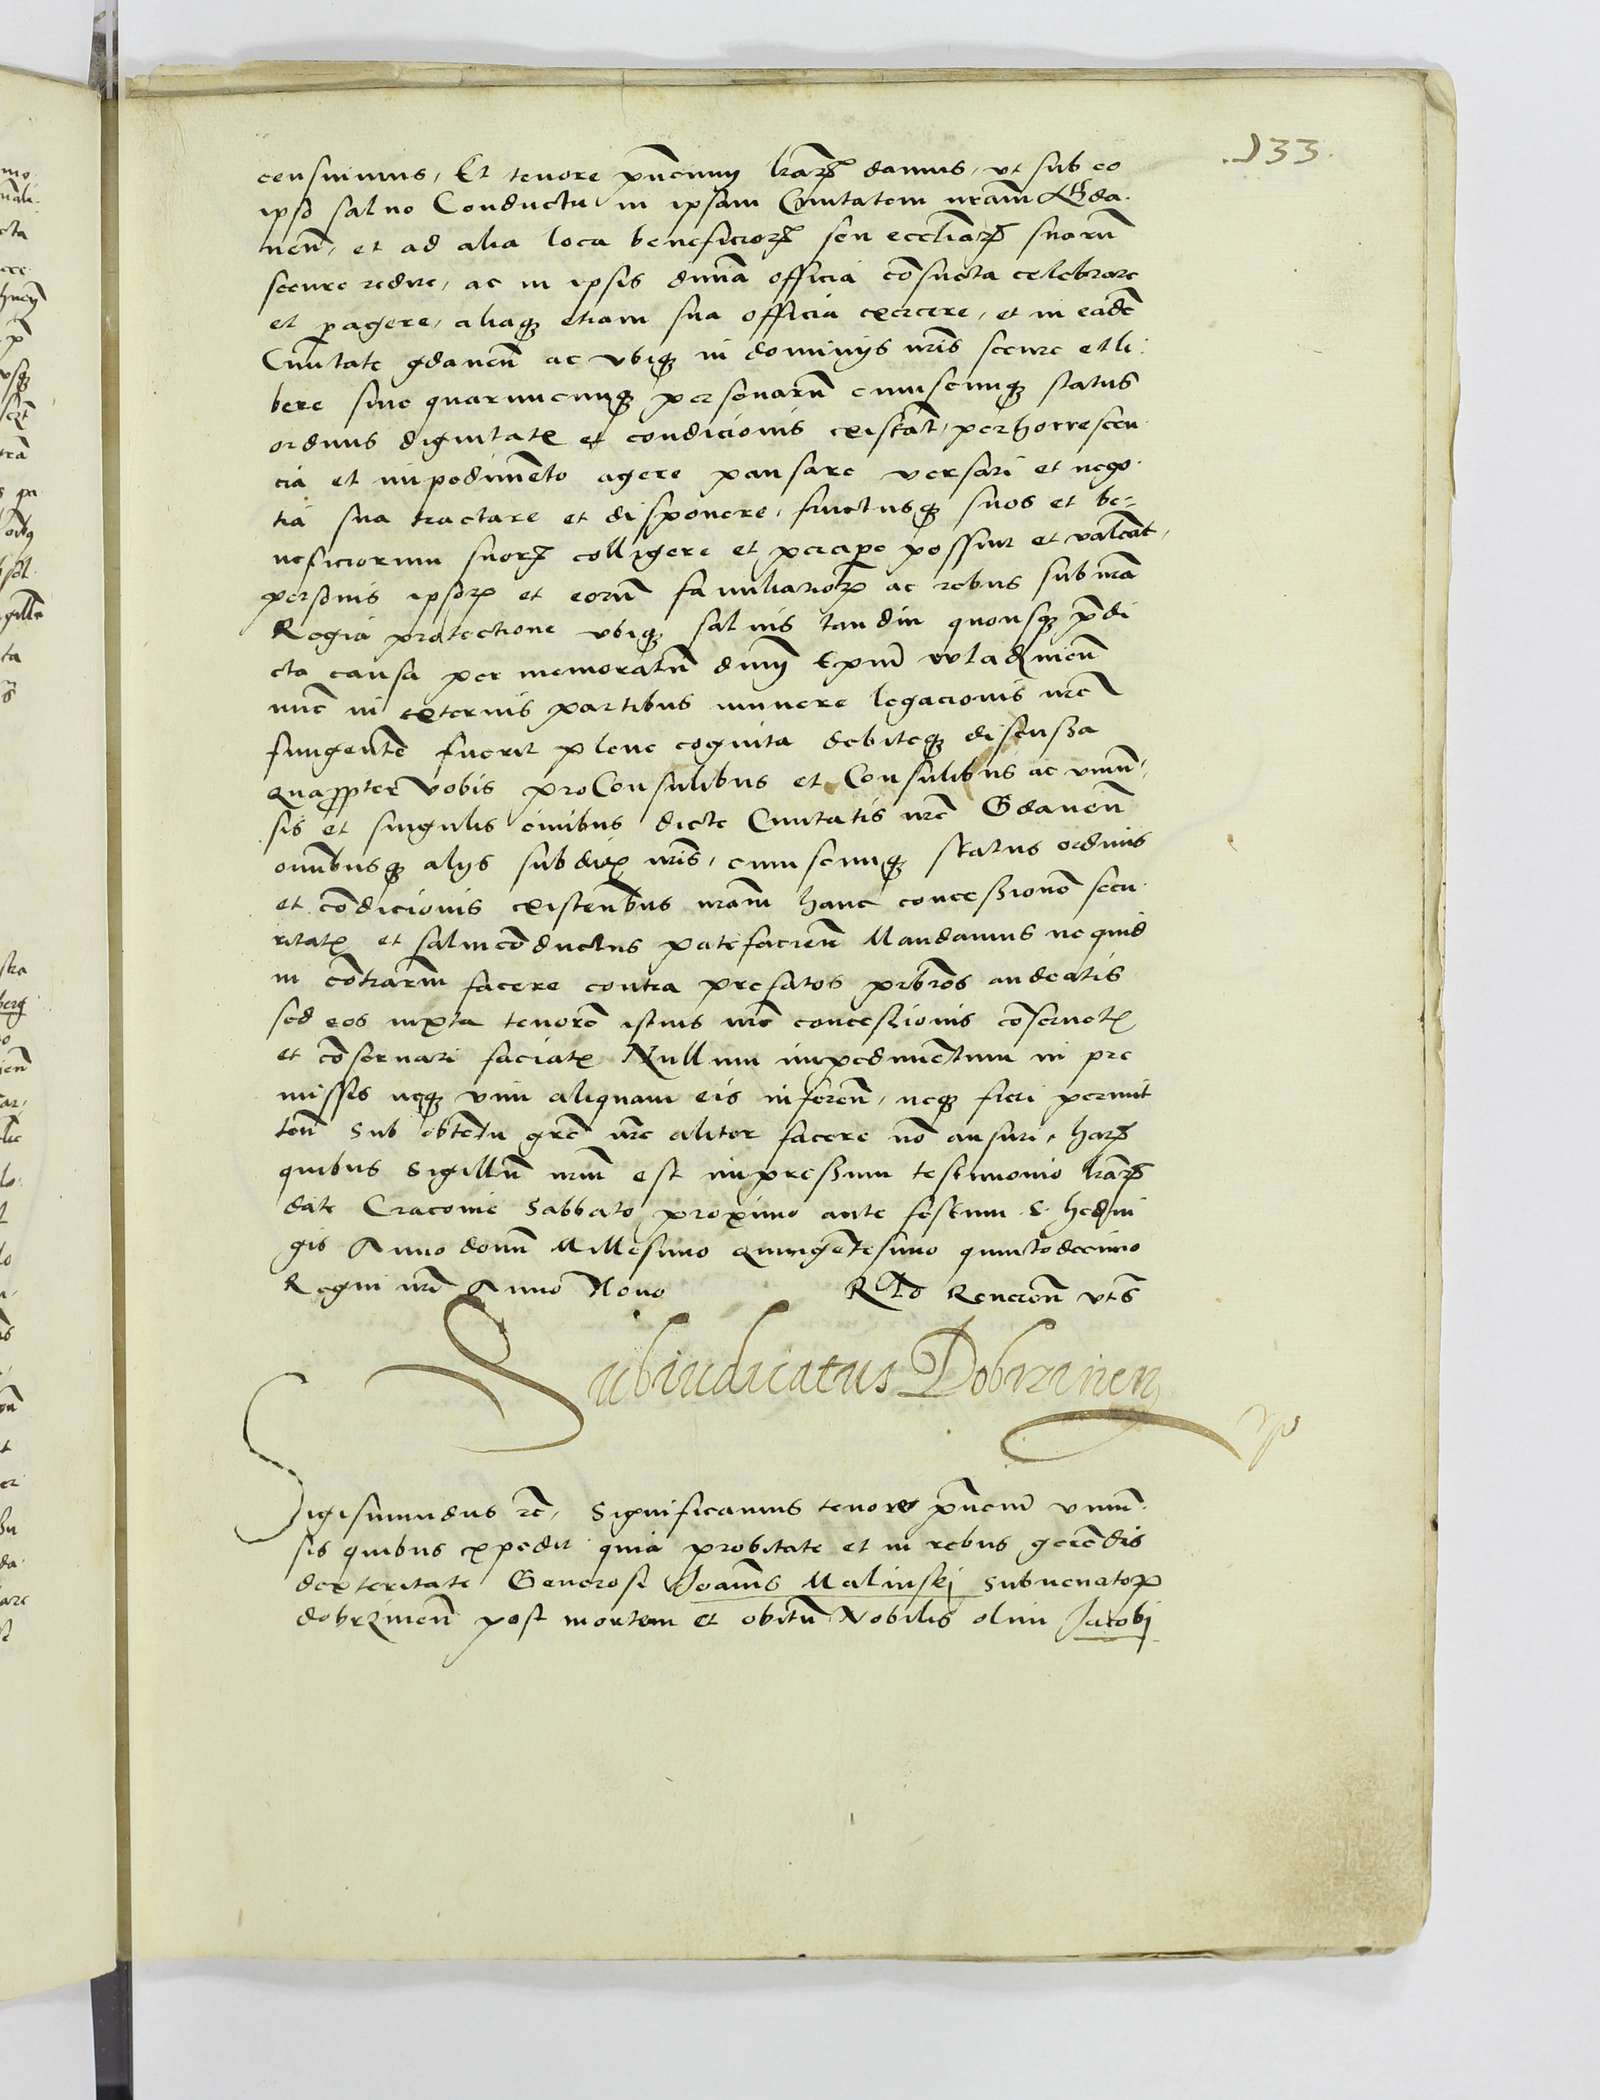 .133.
censuimus, Et tenore pñcium lrarꝝ damus, vt sub eo
ipso saluo Conductu in ipsam Ciuitatem nram Gda-
nen̄, et ad alia loca beneficiorꝝ seu eccliarꝝ suarum
secure redire, ac in ipsis diuina officia cōsueta celebrare
et ꝑagere, aliaqꝫ etiam sua officia exercere, et in eadē
Ciuitate gdanen̄ ac vbiqꝫ in dominijs nris secure et li-
bere sine quarumcunqꝫ personarum cuiuscunqꝫ status
ordinis dignitatꝭ et condicionis existāt, perhorrescen-
cia et impedimēto agere pausare versari et nego-
tia sua tractare et disponere, fructusqꝫ suos et be-
neficiorum suorꝝ colligere et percipe possint et valeāt,
personis ipsorꝝ et eorum familiariorꝝ ac rebus sub nra
Regia protectione vbiqꝫ saluis tamdiu quousqꝫ p̄di
cta causa per memoratum dnm Epum wladislauien̄
nūc in externis partibus munere legacionis nre
fungentē fuerit plene cognita debiteqꝫ discussa
Quapropter vobis proConsulibus et Consulibus ac vniuer-
sis et singulis ciuibus dicte Ciuitatis nre Gdanen̄
omnibusqꝫ alijs subditꝭ nris, cuiuscunqꝫ status ordinis
et cōdicionis existentibus nram hanc concessionem secu-
ritatꝭ et saluicōductus patefacien̄ Mandamus ne quid
in cōtrarium facere contra prefatos prbros audeatis
sed eos iuxta tenorē istius nre concessionis cōseruetꝭ
et cōseruari faciatꝭ Nullum impedimentum in pre
missis neqꝫ vim aliquam eis inferen̄, neqꝫ fieri permit
ten̄ sub obtentu grē nre aliter facere nō ausuri, harꝝ
quibus Sigillum nrum est impressum testimonio lrarꝝ
date Cracouie Sabbato proximo ante festum S. hedui
gis Anno domini Millesimo quingentesimo quintodecimo
Regni nri Anno Nono Rlo Reueren̄ vts
Subiudicatus Dobrzinen̄
Sigismundus rc̄, Significamus tenore pñcium vniuer-
sis quibus expedit quia probitate et in rebus gerēdis
dexteritate Generosi Joannis Malinskj subuenatorꝭ
dobrzinen̄ post mortem et obitum Nobilis olim Jacobj